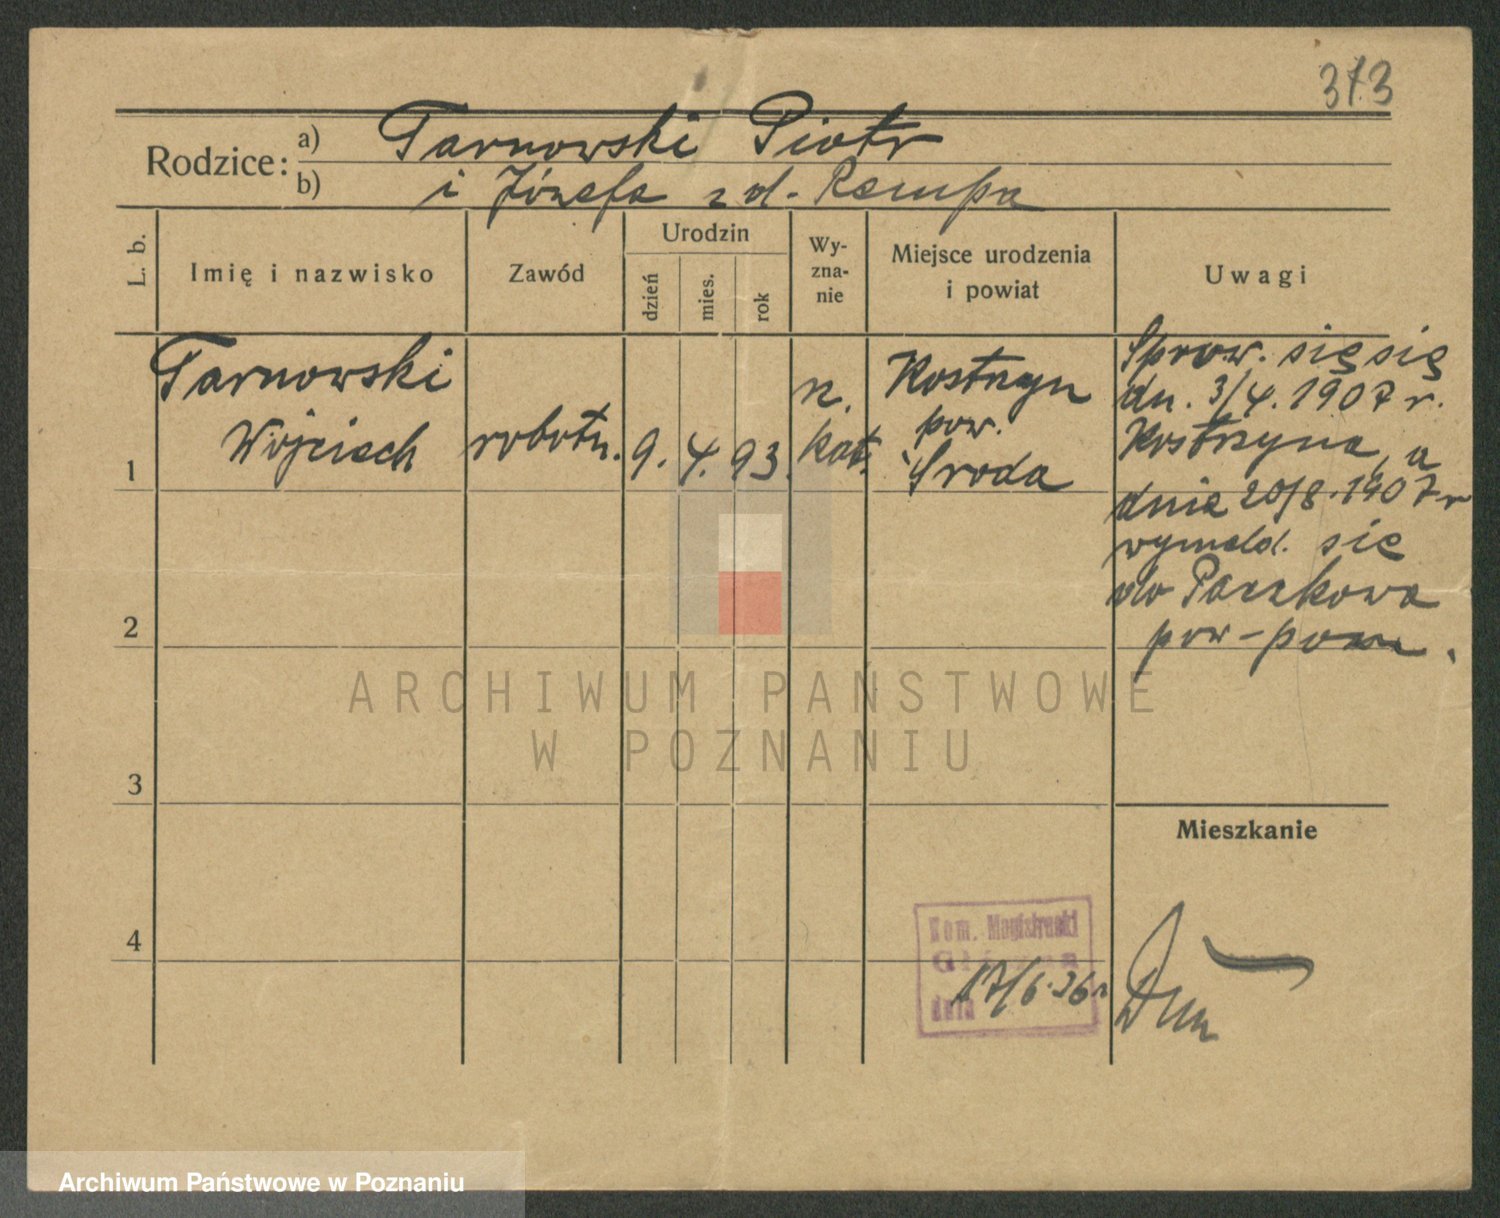 373
Rodzice: a) Tarnowski Piotr
b) i Józefa z d. Rempa
L. b.
Imię i nazwisko
Zawód
Urodzin
dzień
mies.
rok
Wy-
zna-
nie
Miejsce urodzenia
i powiat
Uwagi
1
Tarnowski
Wojciech
robotn.
9. 4. 93.
rz.
kat.
Kostrzyn
pow.
Środa
Sprow. się się
dn. 3/4. 1907 r.
Kostrzyna, a
dnia 20/8. 1907 r
wymeld. się
do Paczkowa
pow-pozn.
2
3
4
Mieszkanie
Kom. Magistracki
Główna
dnia 17/6.36 r
ARCHIWUM PAŃSTWOWE
W POZNANIU
Archiwum Państwowe w Poznaniu